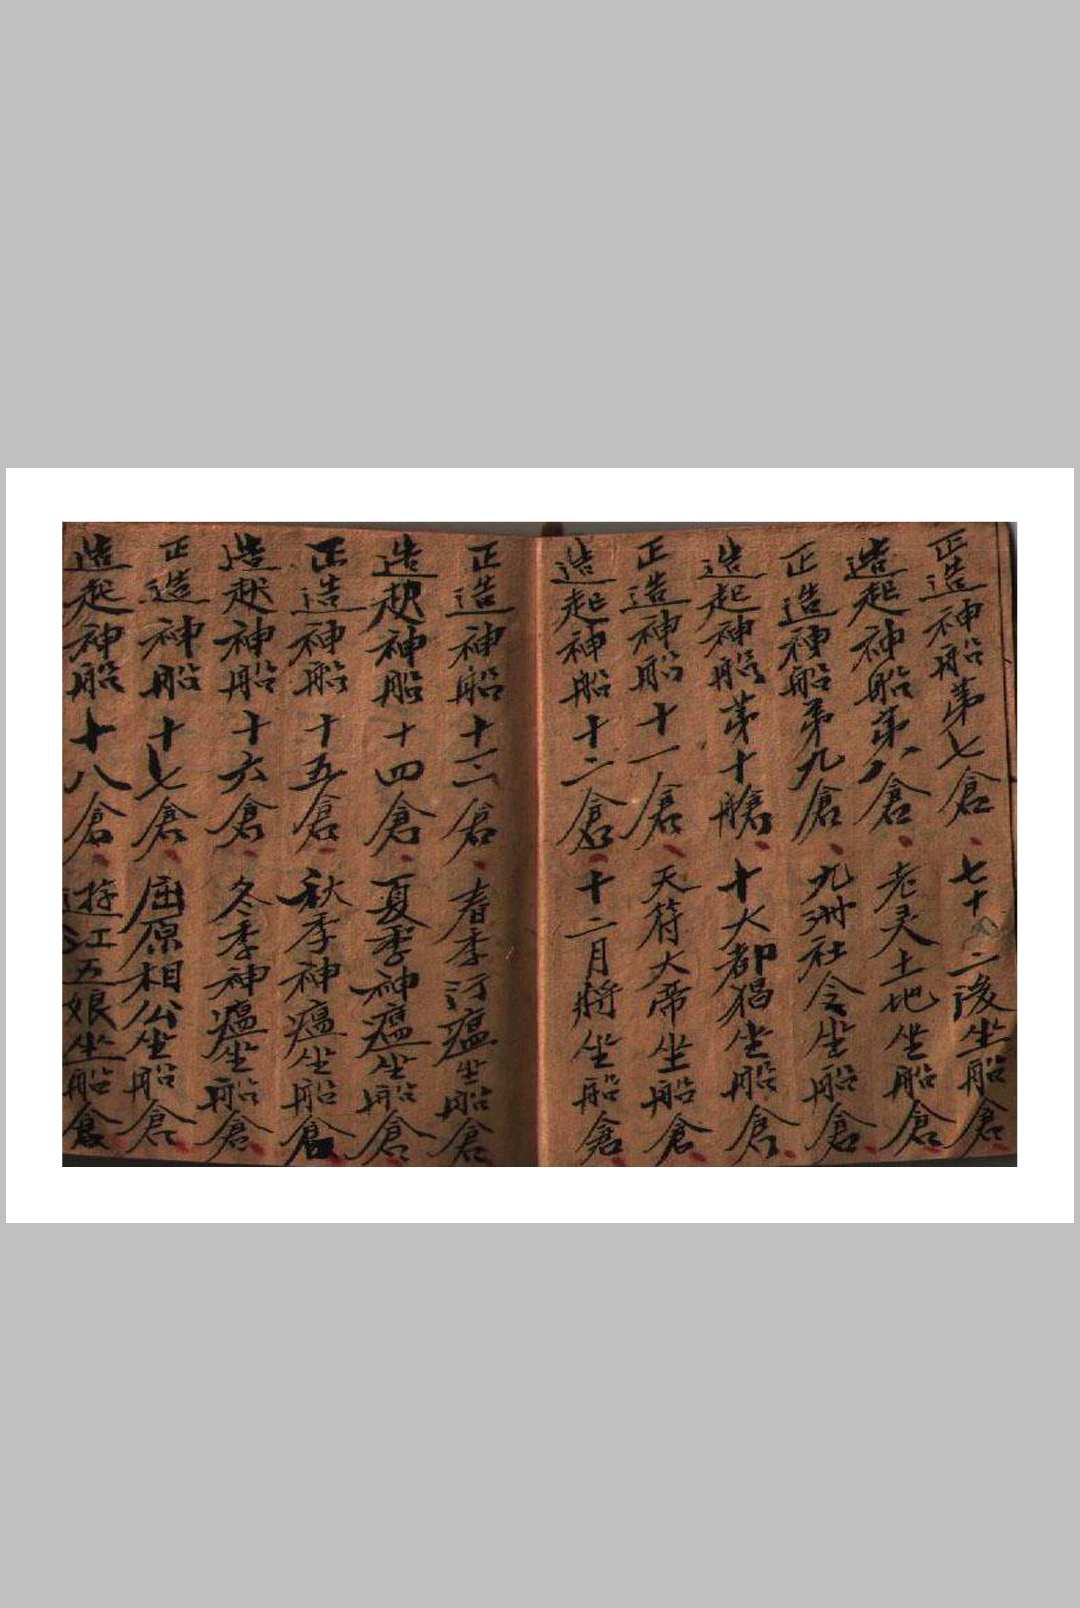 正造神船第七倉七十二後坐船倉
造起神船第八倉老灵土地坐船倉
正造神船第九倉九洲社令坐船倉
造起神船第十艙十大都猖坐船倉
正造神船十一倉天符大帝坐船倉
造起神船十二倉十二月將坐船倉
正造神船十三倉春季瘟坐船倉
造起神船十四倉夏季神瘟坐船倉
正造神船十五倉秋季神瘟坐船倉
造起神船十六倉冬季神瘟坐船倉
正造神船十七倉屈原相公坐船倉
造起神船十八倉遊江五娘坐船倉